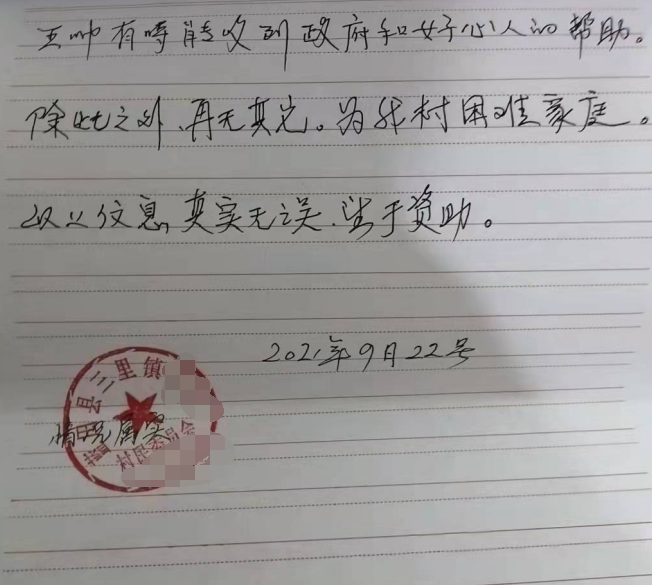 王帅有时能收到政府和好心人的帮助。
除此之外、再无其它。为我村困难家庭。
以上信息,真实无误、望于资助。
2021年9月22号
蓝田县三里镇
情况属实
村民委员会